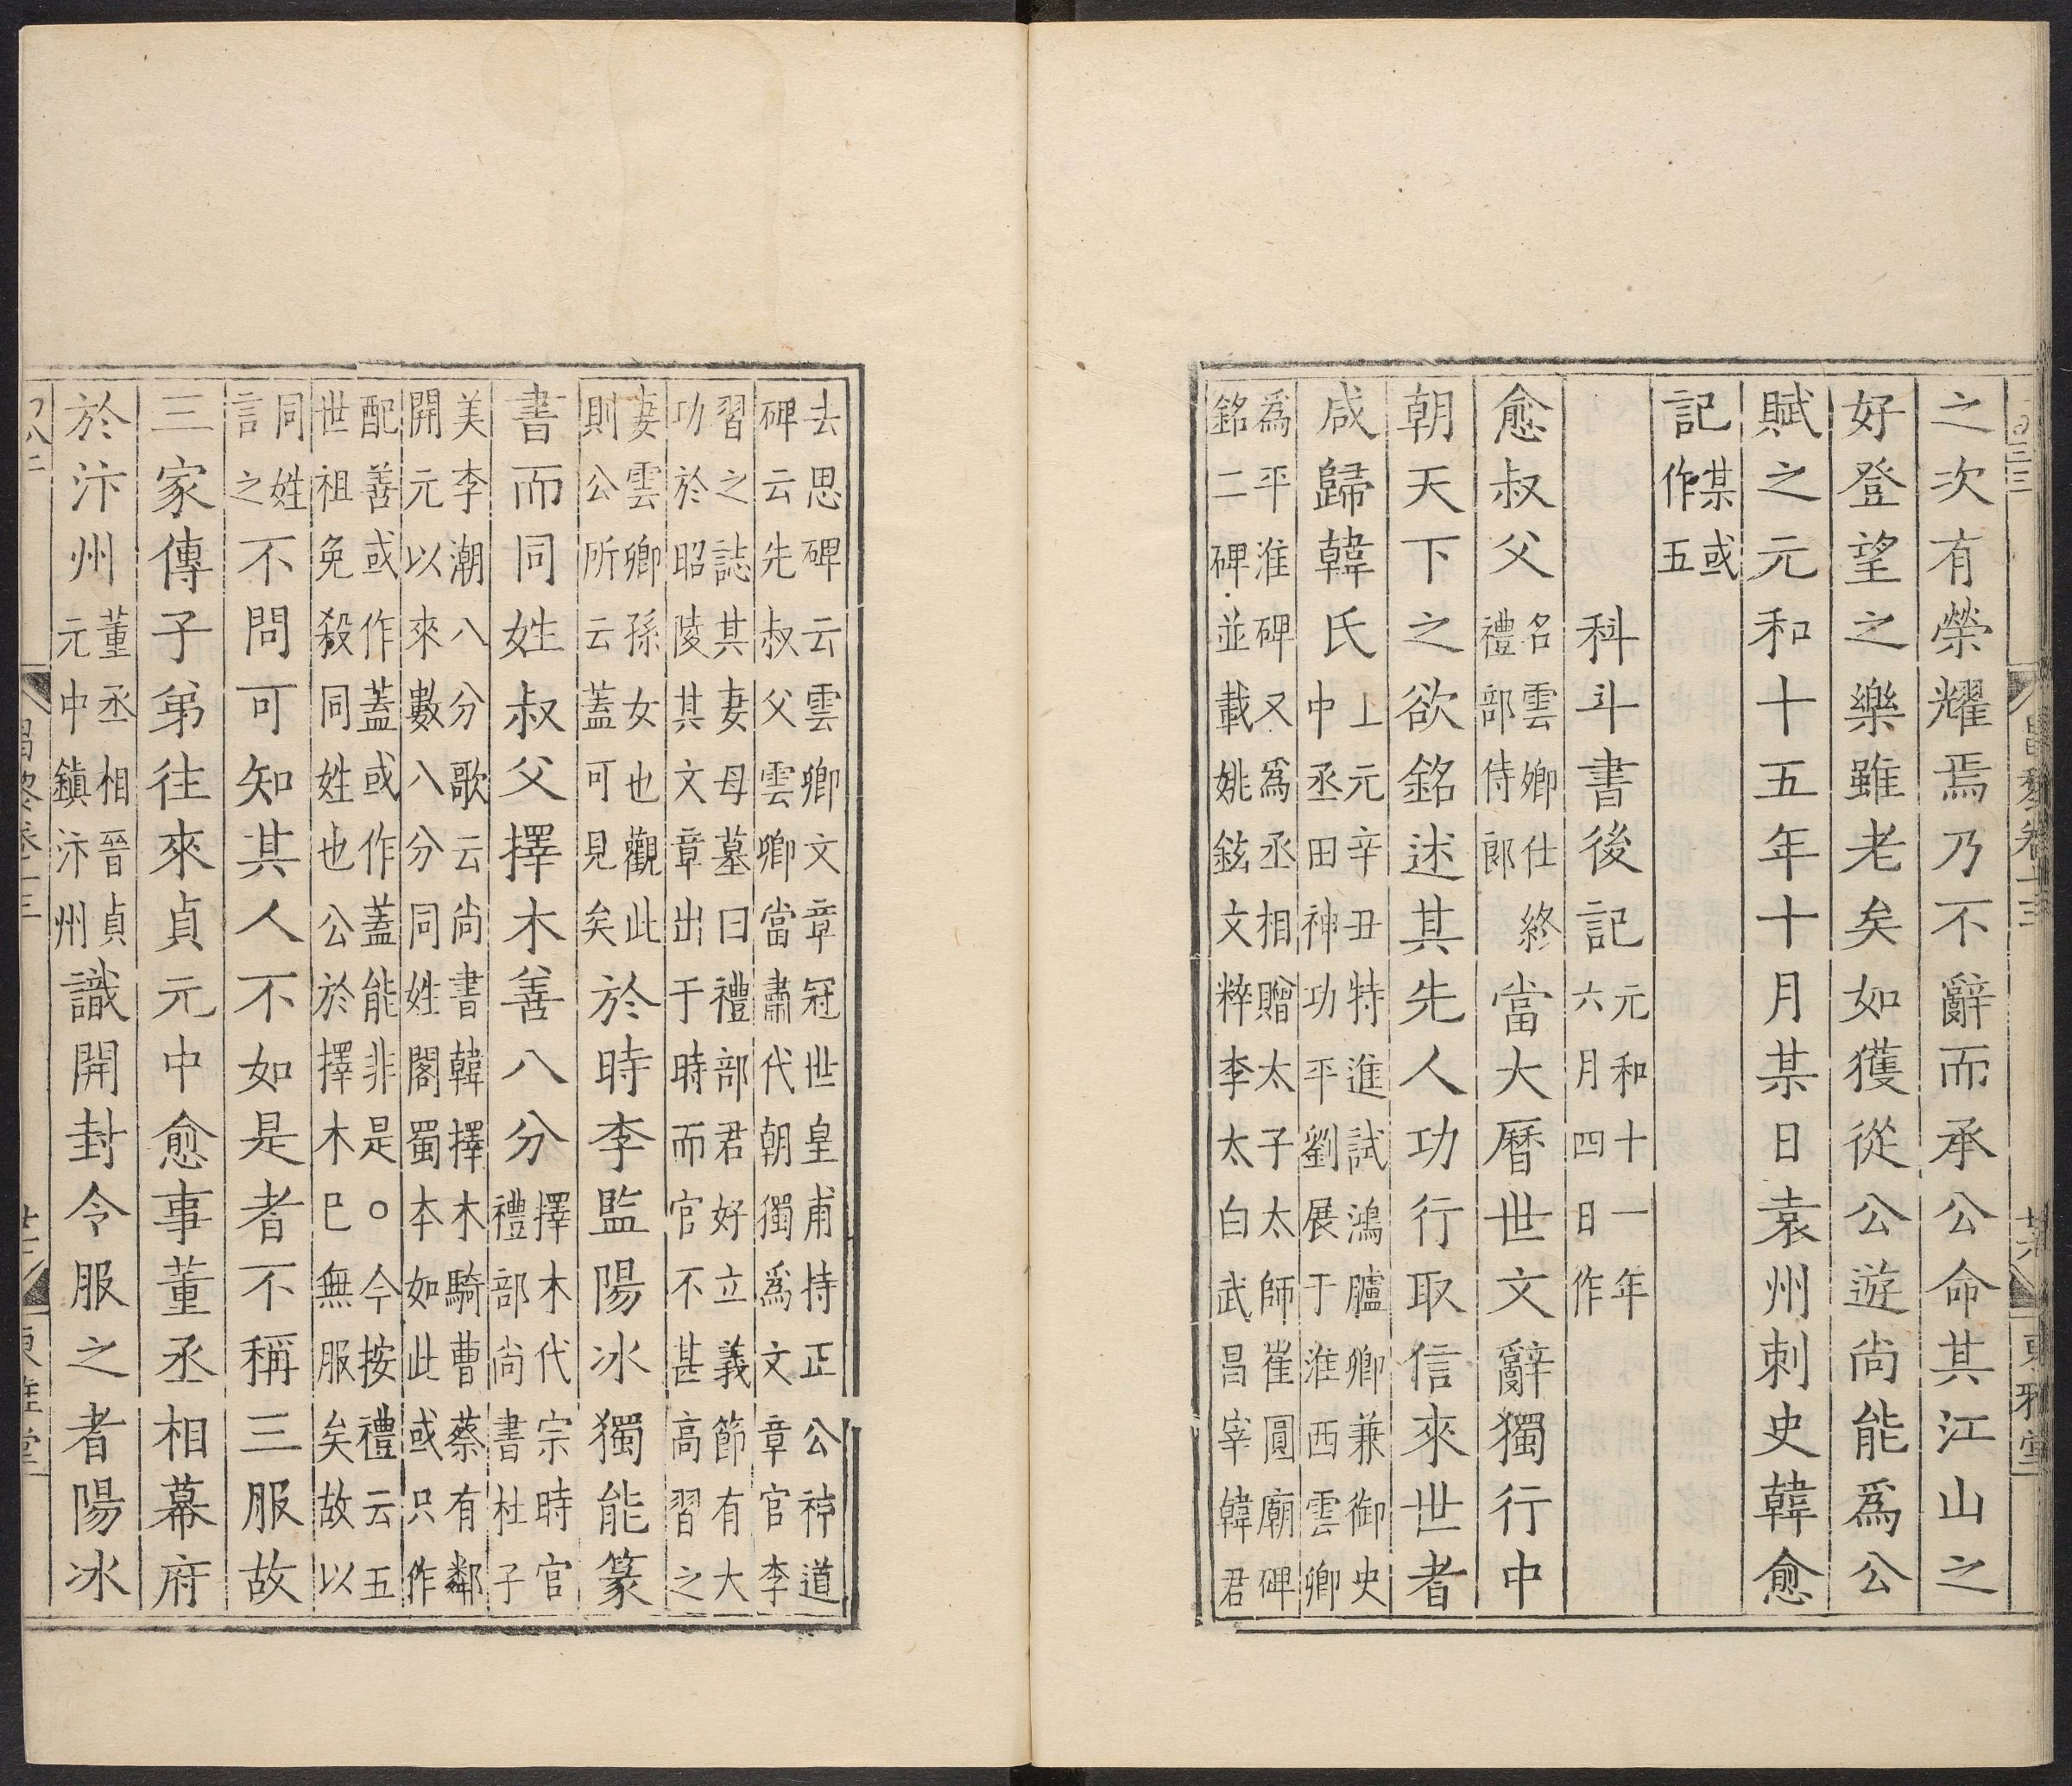 之次有榮耀焉乃不辭而承公命其江山之
好登望之樂雖老矣如獲從公遊尚能爲公
賦之元和十五年十月某日袁州刺史韓愈
記某或
作五
科斗書後記元和十一年
六月四日作
愈叔父名雲卿仕終
禮部侍郎當大曆世文辭獨行中
朝天下之欲銘述其先人功行取信來世者
咸歸韓氏上元辛丑特進試鴻臚卿兼御史
中丞田神功平劉展于淮西雲卿
爲平淮碑又爲丞相贈太子太師崔圓廟碑
銘二碑並載姚鉉文粹李太白武昌宰韓君
去思碑云雲卿文章冠世皇甫持正公神道
碑云先叔父雲卿當肅代朝獨爲文章官李
習之誌其妻母墓曰禮部君好立義節有大
功於昭陵其文章出于時而官不甚高習之
妻雲卿孫女也觀此
則公所云蓋可見矣於時李監陽冰獨能篆
書而同姓叔父擇木善八分擇木代宗時官
禮部尚書杜子
美李潮八分歌云尚書韓擇木騎曹蔡有鄰
開元以來數八分同姓閣蜀本如此或只作
配善或作蓋或作蓋能非是○今按禮云五
世祖免殺同姓也公於擇木已無服矣故以
同姓
言之不問可知其人不如是者不稱三服故
三家傳子弟往來貞元中愈事董丞相幕府
於汴州董丞相晉貞
元中鎮汴州識開封令服之者陽冰
昌黎卷十三
東雅堂